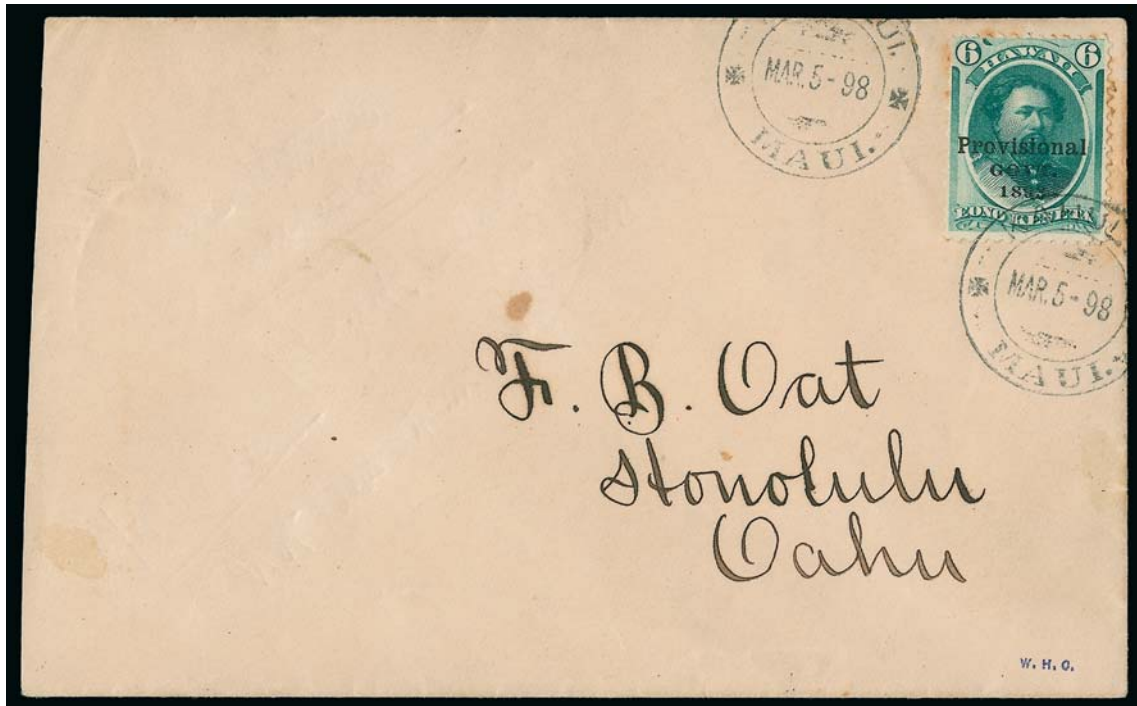 MAR. 5 - 98
MAUI.
6 6
HAWAII
Provisional
GOVT.
MAR. 5 - 98
MAUI.
F. B. Oat
Honolulu
Oahu
W. H. O.